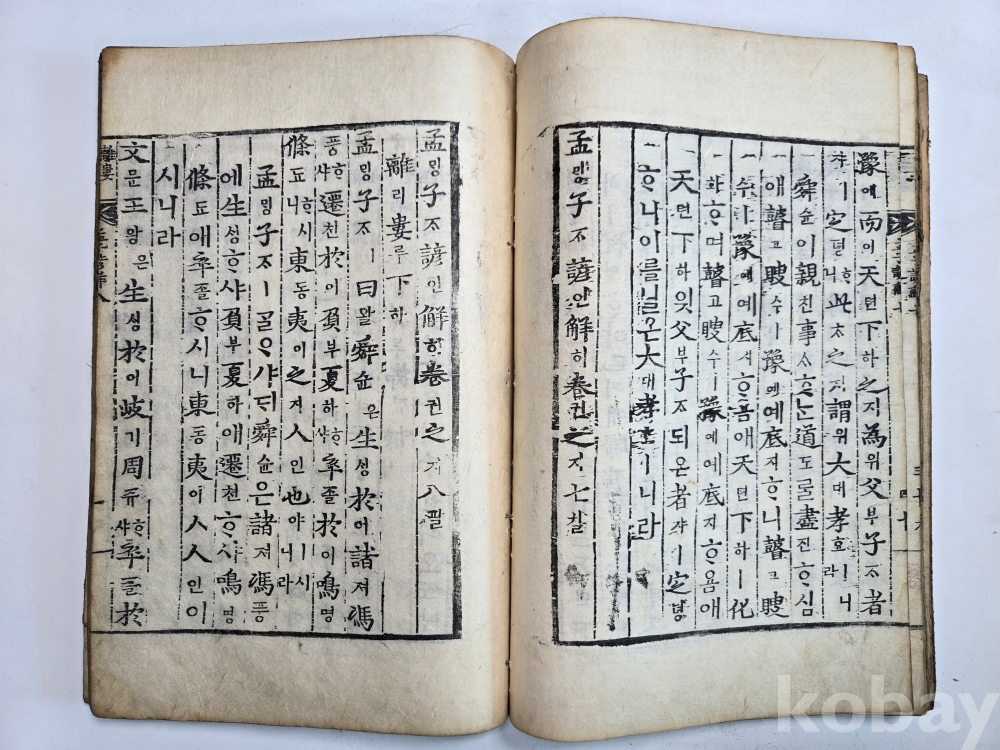 豫예而이天텬下하之지為위父부子ᄌᆞ者
쟈ㅣ定뎡ᄒᆞ니此ᄎᆞ之지謂위大대孝효ㅣ니라
舜슌이親친事ᄉᆞᄒᆞᄂᆞᆫ道도ᄅᆞᆯ盡진ᄒᆞ심
애瞽고瞍수ㅣ豫예예底지ᄒᆞ니瞽고瞍
수ㅣ豫예예底지ᄒᆞ욤애天텬下하ㅣ化
화ᄒᆞ며瞽고瞍수ㅣ豫예예底지ᄒᆞ욤애
天텬下하읫父부子ᄌᆞ되온者쟈ㅣ定뎡
ᄒᆞ나이를닐온大대孝효ㅣ니라
孟ᄆᆡᆼ子ᄌᆞ諺언解ᄒᆡ卷권之지七칠
孟ᄆᆡᆼ子ᄌᆞ諺언解ᄒᆡ卷권之지八팔
離리婁루下하
孟ᄆᆡᆼ子ᄌᆞㅣ曰왈舜슌은生ᄉᆡᆼ於어諸져馮
풍ᄒᆞ샤遷쳔於어負부夏하ᄒᆞ샤卒졸於어鳴명
條됴ᄒᆞ시니東동夷이之지人인也야ㅣ시니라
孟ᄆᆡᆼ子ᄌᆞㅣᄀᆞᆯᄋᆞ샤ᄃᆡ舜슌은諸져馮풍
에生ᄉᆡᆼᄒᆞ샤負부夏하애遷쳔ᄒᆞ샤鳴명
條됴애卒졸ᄒᆞ시니東동夷이人인이
시니라
文문王왕은生ᄉᆡᆼ於어岐기周쥬ᄒᆞ샤卒졸於
離婁
kobay